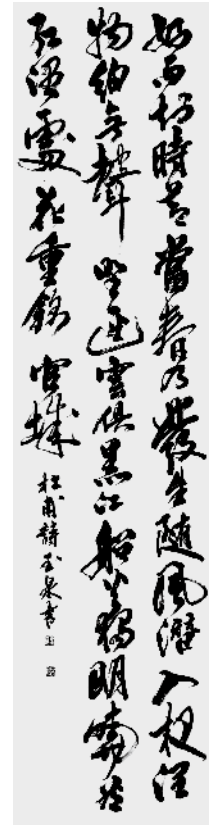 好雨知時節當春乃發生隨風潛入夜潤
物細無聲野逕雲俱黑江船火獨明曉看
紅濕處花重錦官城
杜甫詩泉書